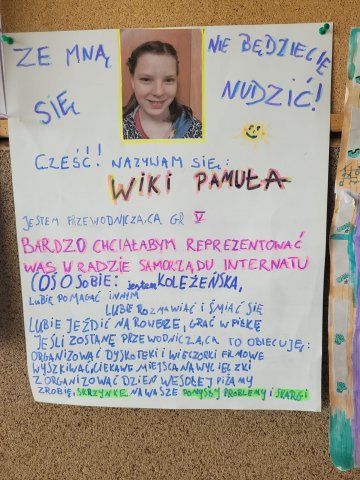 ZE MNĄ
SIĘ
NIE BĘDZIECIE
NUDZIĆ!
CZEŚĆ!! NAZYWAM SIĘ:
WIKI PAMUŁA
JESTEM PRZEWODNICZĄCA GR V
BARDZO CHCIAŁABYM REPREZENTOWAĆ
WAS W RADZIE SAMORZĄDU INTERNATU
COŚ O SOBIE: jestem KOLEŻEŃSKA,
LUBIĘ POMAGAĆ INNYM
LUBIĘ ROZMAWIAĆ I ŚMIAĆ SIĘ
LUBIĘ JEŹDZIĆ NA ROWERZE, GRAĆ W PIŁKĘ
JEŚLI ZOSTANĘ PRZEWODNICZĄCĄ TO OBIECUJĘ:
ORGANIZOWAĆ DYSKOTEKI I WIECZORKI FILMOWE
WYSZUKIWAĆ CIEKAWE MIEJSCA NA WYCIECZKI
ZORGANIZOWAĆ DZIEŃ WESOŁEJ PIŻAMY
ZROBIĘ, SKRZYNKĘ NA WASZE POMYSŁY PROBLEMY I SKARGI